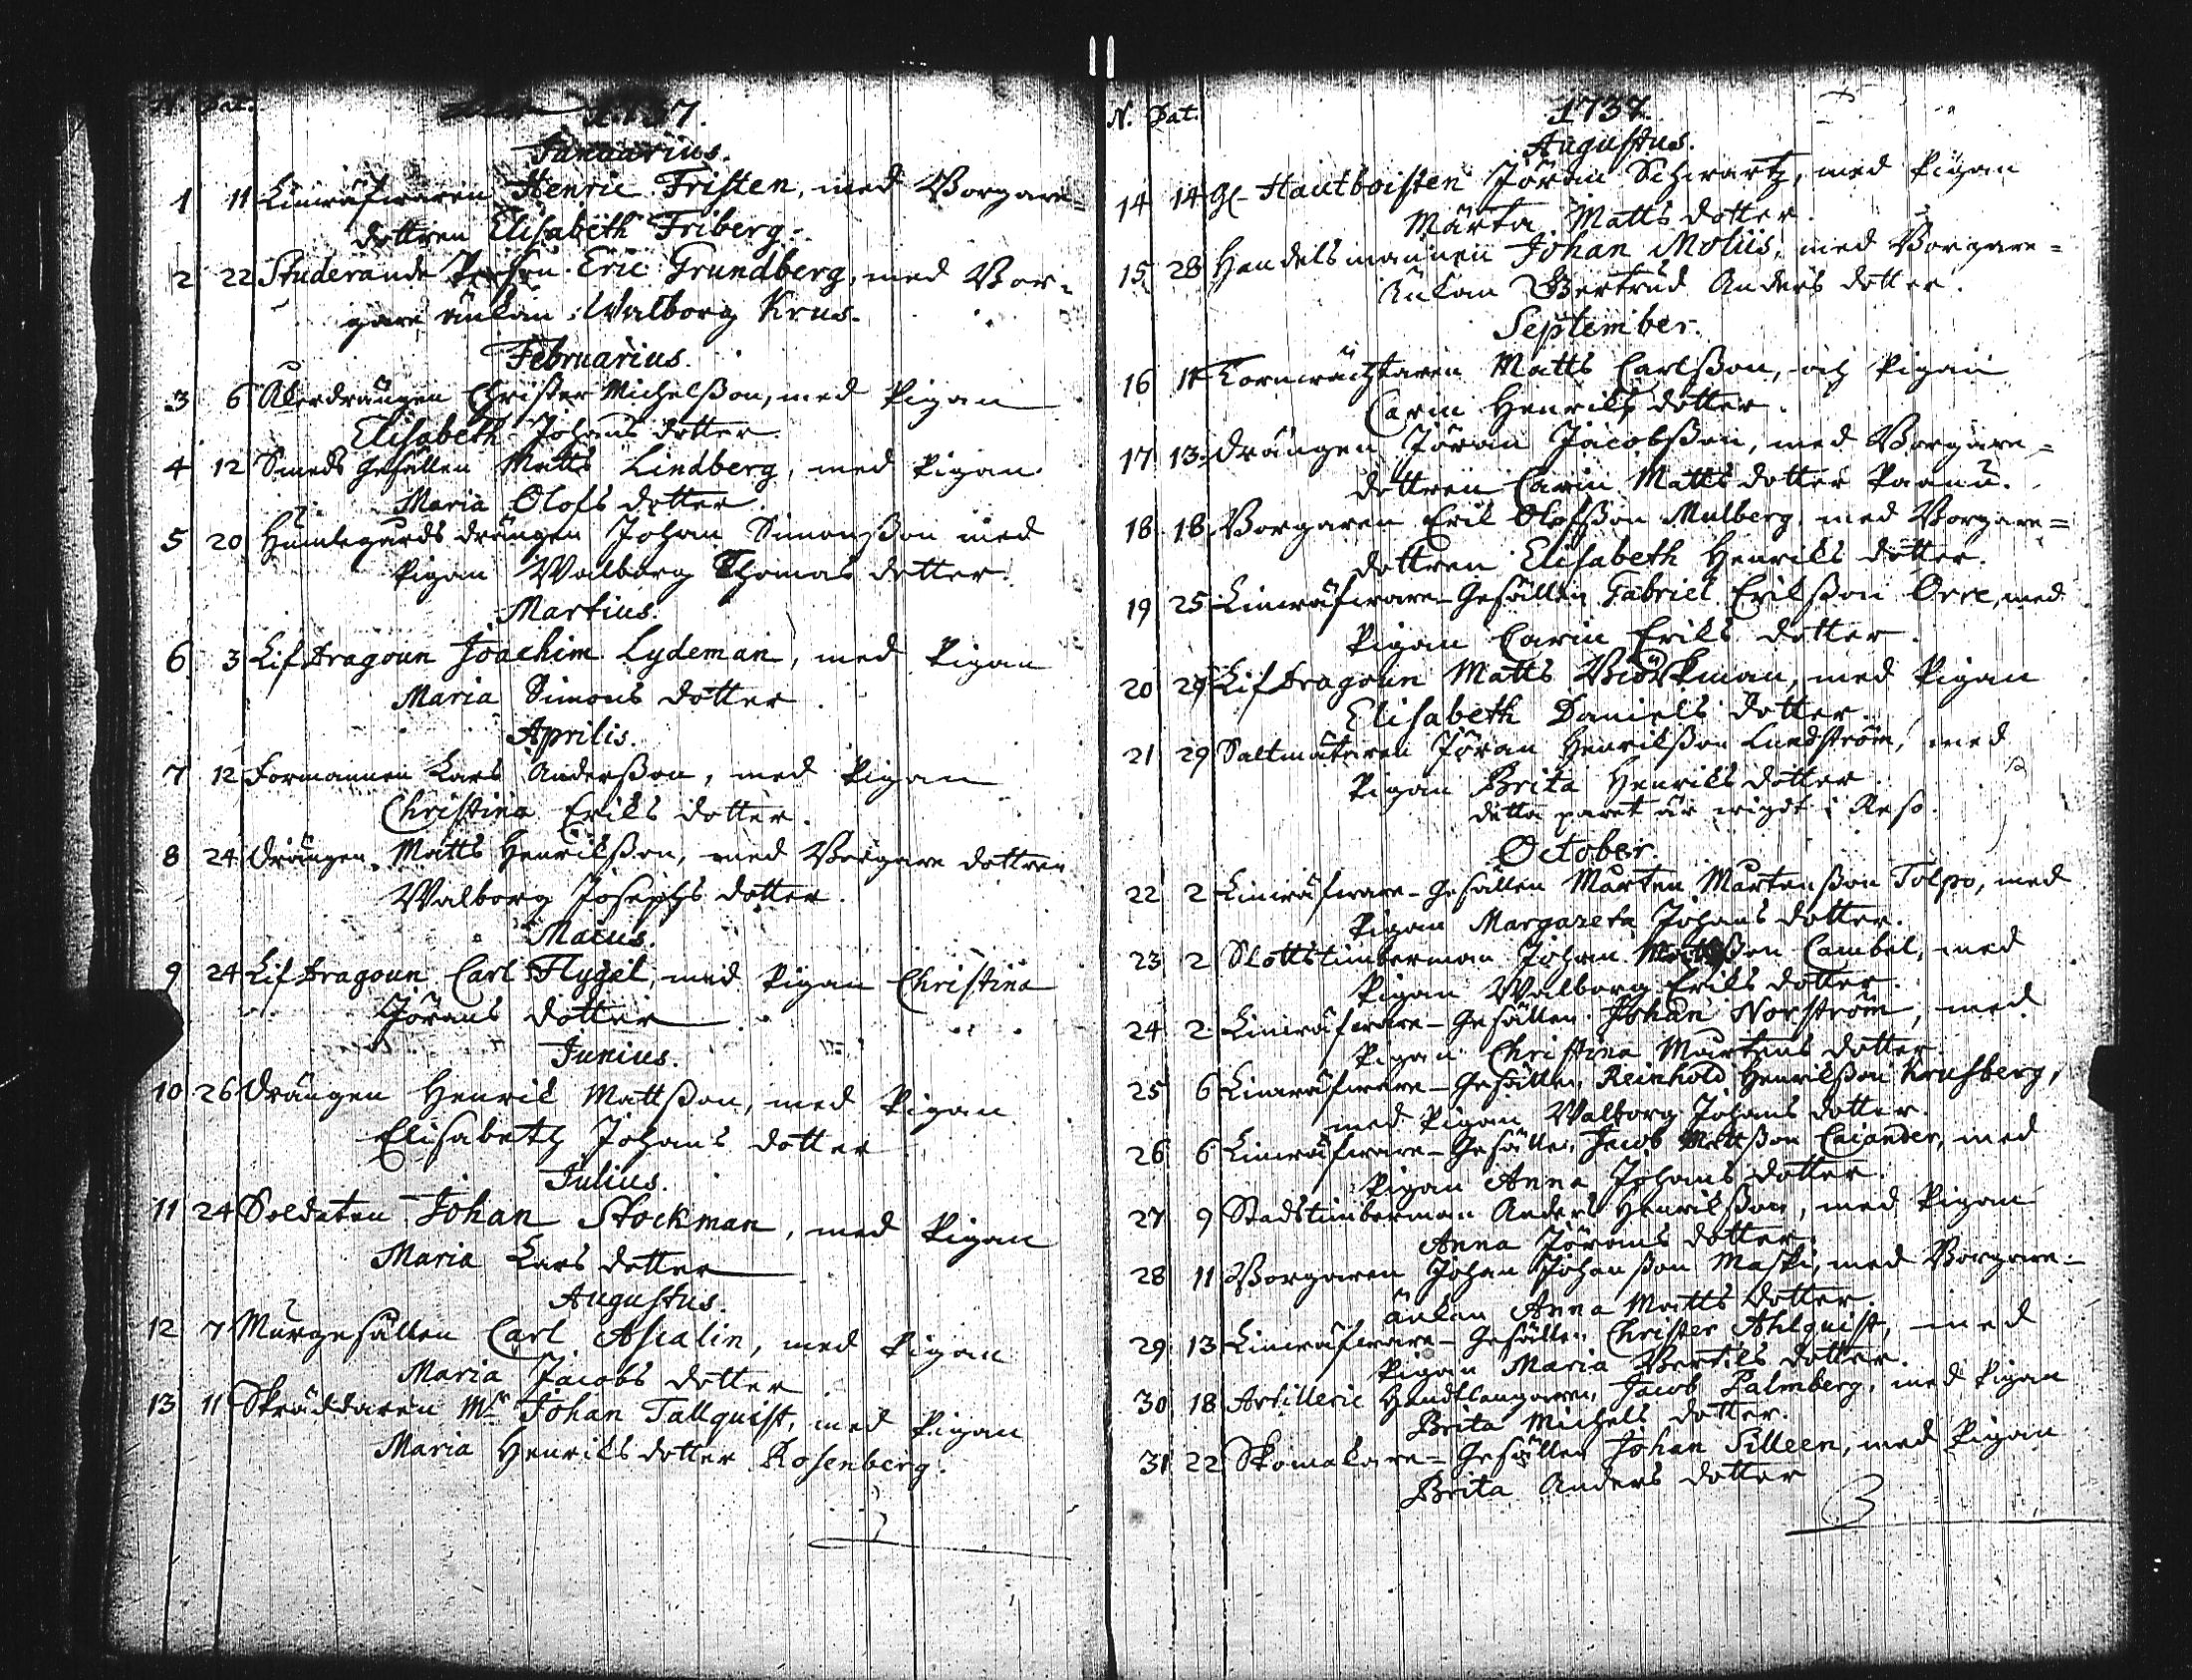 N. Dat.
1737.
Januarius.
1 11 Linwäfwaren Henric Fristen, med Borgare=
dottren Elisabeth Friberg.
2 22 Studerande Eric Grundberg, med Bor=
gare änkan Walborg Krus.
Februarius.
3 6 Åkerdrängen Christer Michelßon, med Pigan
Elisabeth Johans dotter.
4 12 Smeds Gesällen Matts Lindberg, med Pigan
Maria Olofs dotter.
5 20 Humlegårds drängen Johan Simonßon med
Pigan Walborg Thomas dotter.
Martius.
6 3 Lif Dragoun Joachim Lydeman, med Pigan
Maria Simons dotter.
Aprilis.
7 12 Formannen Lars Anderßon, med Pigan
Christina Eriks dotter.
8 24 Drängen Matts Henrikßon, med Borgare dottren
Walborg Josephs dotter.
Maius.
9 24 Lif Dragoun Carl Flygel, med Pigan Christina
Jörans dotter
Junius.
10 26 Drängen Henrik Mattßon, med Pigan
Elisabeth Johans dotter
Julius.
11 24 Soldaten Johan Stockman, med Pigan
Maria Lars dotter
Augustus.
12 7 Murgesällen Carl Ascalin, med Pigan
Maria Jacobs dotter
13 11 Skräddaren Mr Johan Tallquist, med Pigan
Maria Henriks dotter Rosenberg.
N. Dat.
1737.
Augustus.
14 14 Hautboisten Jöran Schwartz, med Pigan
Märta Matts dotter.
15 28 Handelsmannen Johan Moliis, med Borgare=
änkan Gertrud Anders dotter.
September.
16 11 Tornwäcktaren Matts Carlßon, och Pigan
Carin Henriks dotter.
17 13 Drängen Jöran Jacobßon, med Borgare=
dottren Carin Matts dotter Paanu.
18 18 Borgaren Erik Olofßon Mulberg, med Borgare=
dottren Elisabeth Henriks dotter.
19 25 Linwäfware-Gesällen Gabriel Erikßon Orre, med
Pigan Carin Eriks dotter.
20 29 Lif Dragoun Matts Biörkman, med Pigan
Elisabeth Daniels dotter.
21 29 Saltmätaren Jöran Henrikßon Lundström, med
Pigan Brita Henriks dotter
detta paret är wigdt i Reso.
October.
22 2 Linwäfware-Gesällen Mårten Mårtenßon Tolpo, med
Pigan Margareta Johans dotter.
23 2 Slottstimberman Johan Mattßon Cambel, med
Pigan Walborg Eriks dotter.
24 2 Linwäfware-Gesällen Johan Norström, med
Pigan Christina Mårtens dotter.
25 6 Linwäfware-Gesällen Reinhold Henrikßon Krusberg,
med Pigan Walborg Johans dotter.
26 6 Linwäfware-Gesällen Jacob Mattßon Caiander, med
Pigan Anna Johans dotter.
27 9 Stadstimberman Anders Henrikßon, med Pigan
Anna Jörans dotter.
28 11 Borgaren Johan Johanßon Maski, med Borgare-
änkan Anna Matts dotter
29 13 Linwäfware-Gesällen Christer Ahlquist, med
Pigan Maria Bertils dotter.
30 18 Artillerie Handtlangaren Jacob Palmberg, med Pigan
Brita Michels dotter.
31 22 Skomakare-Gesällen Johan Silleen, med Pigan
Brita Anders dotter